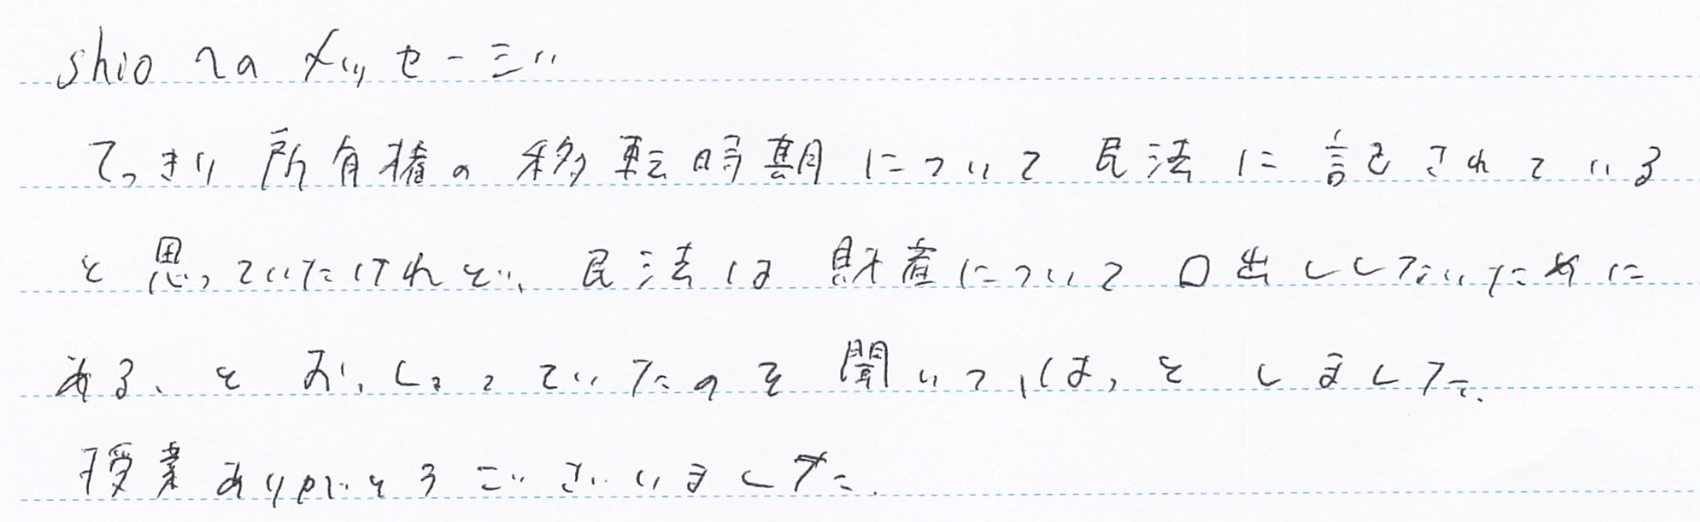 shioへのメッセージ
てっきり所有権の移転時期について民法に記されている
と思っていたけれど、民法は財産について口出ししないために
ある、とおっしゃっていたのを聞いて、はっとしました。
授業ありがとうございました。